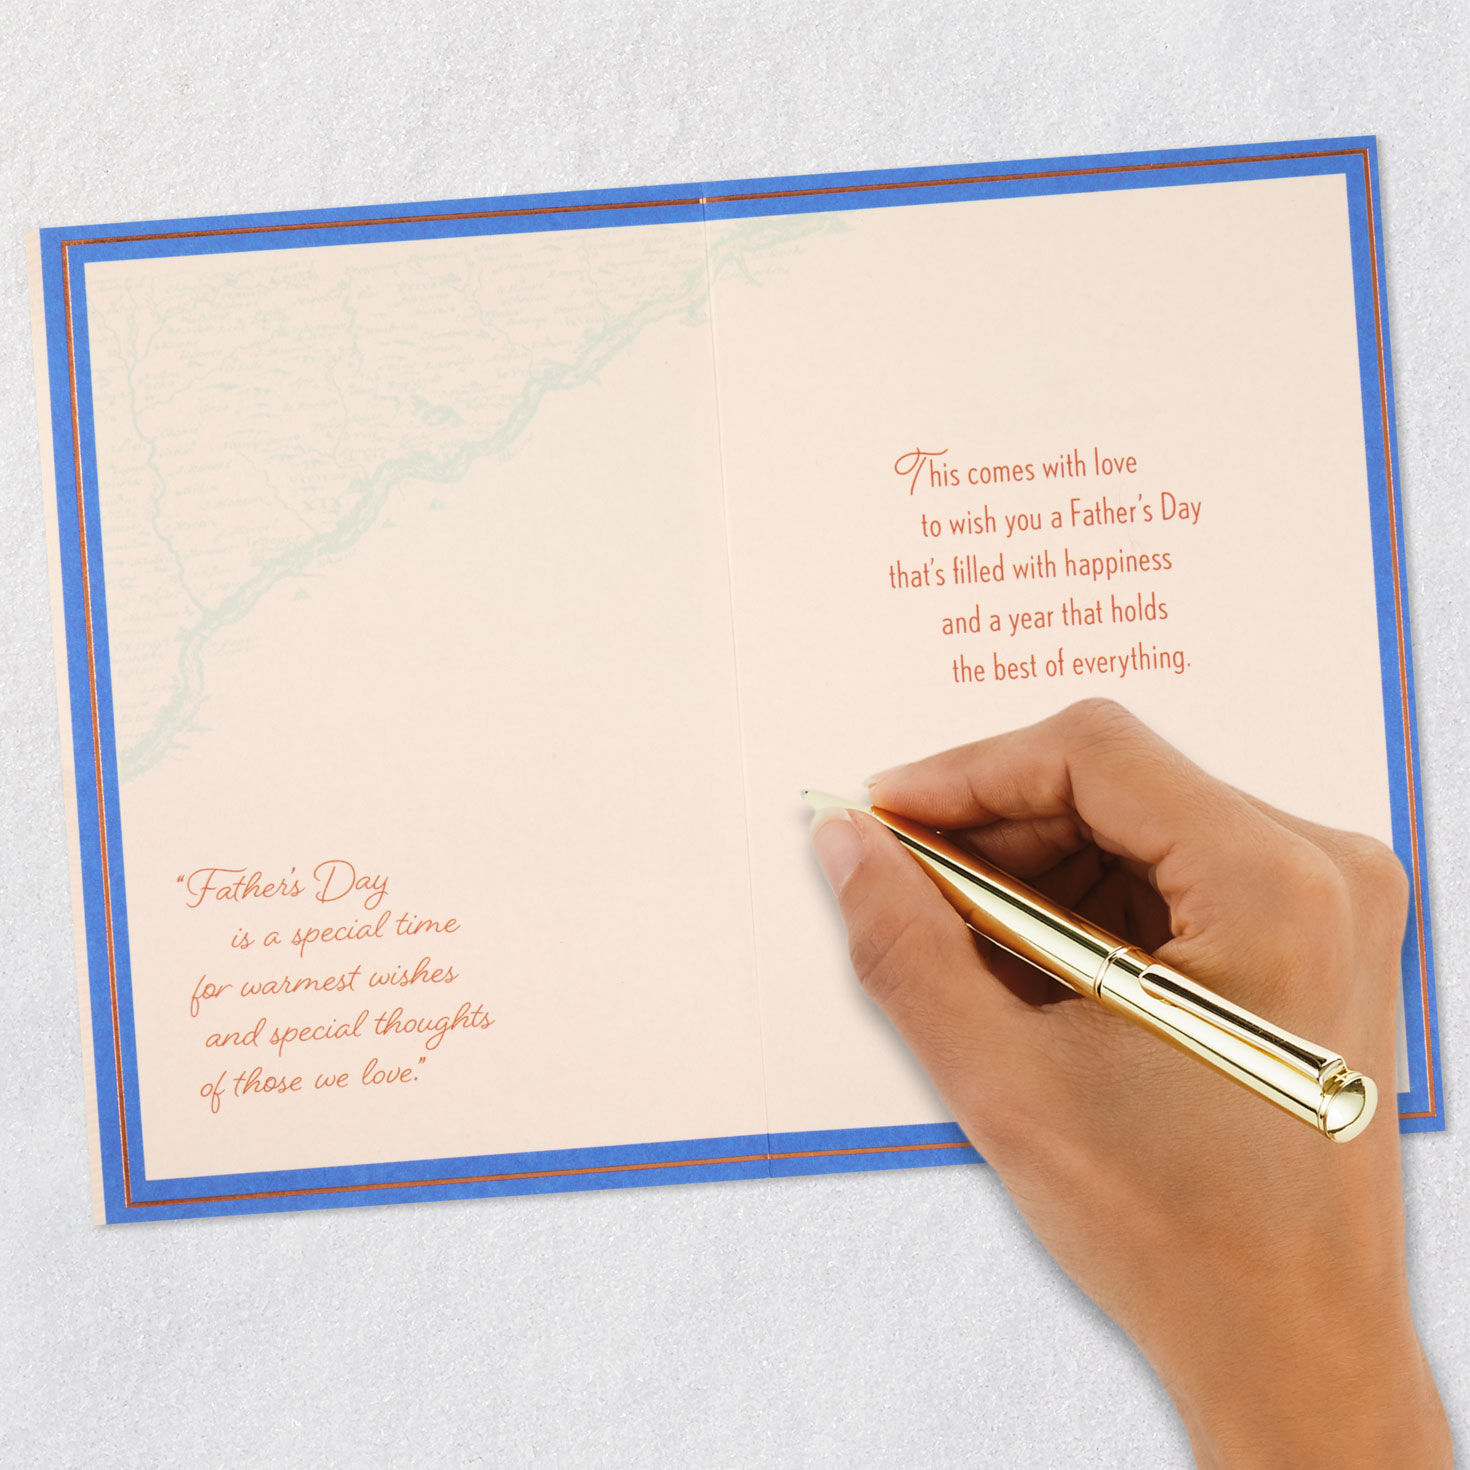 "Father's Day
is a special time
for warmest wishes
and special thoughts
of those we love."
This comes with love
to wish you a Father's Day
that's filled with happiness
and a year that holds
the best of everything.